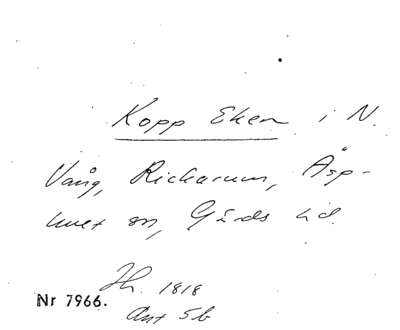 Kopp Eken i N.
Vång, Rickarum, Äsp-
huet sn, Gärds hd.
Jh. 1818
Nr 7966.
Ant 5b